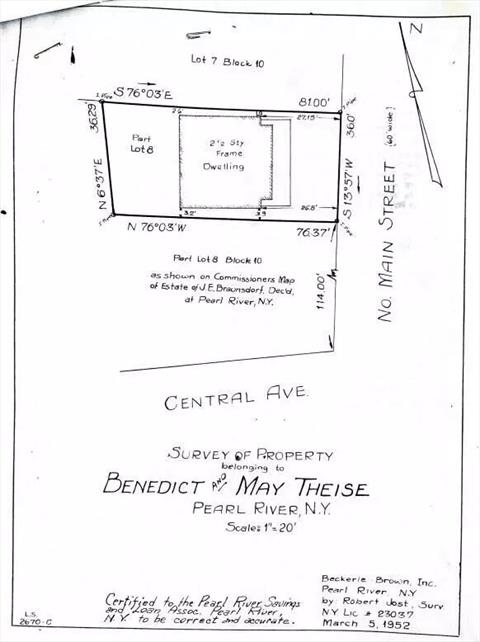 N
Lot 7 Block 10
I. Pipe S 76°03'E 81.00' I. Pipe
36.29'
N 6°37'E
Part
Lot 8
2'2 Sty
Frame
Dwelling
27.15'
26.8'
3.2'
3.9
36.0'
S 13°57'W
No. MAIN STREET (60' wide)
I. Pipe N 76°03'W 76.37' I. Pipe
114.00'
Part Lot 8 Block 10
as shown on Commissioners Map
of Estate of J.E. Braunsdorf, Dec'd,
at Pearl River, N.Y.
CENTRAL AVE.
SURVEY OF PROPERTY
belonging to
BENEDICT AND MAY THEISE
PEARL RIVER, N.Y.
Scale: 1"= 20'
Certified to the Pearl River Savings
and Loan Assoc. Pearl River,
N.Y. to be correct and accurate.
Beckerle Brown, Inc.
Pearl River N.Y
by Robert Jost, Surv.
NY Lic # 23037
March 5, 1952
L.S.
2670-C